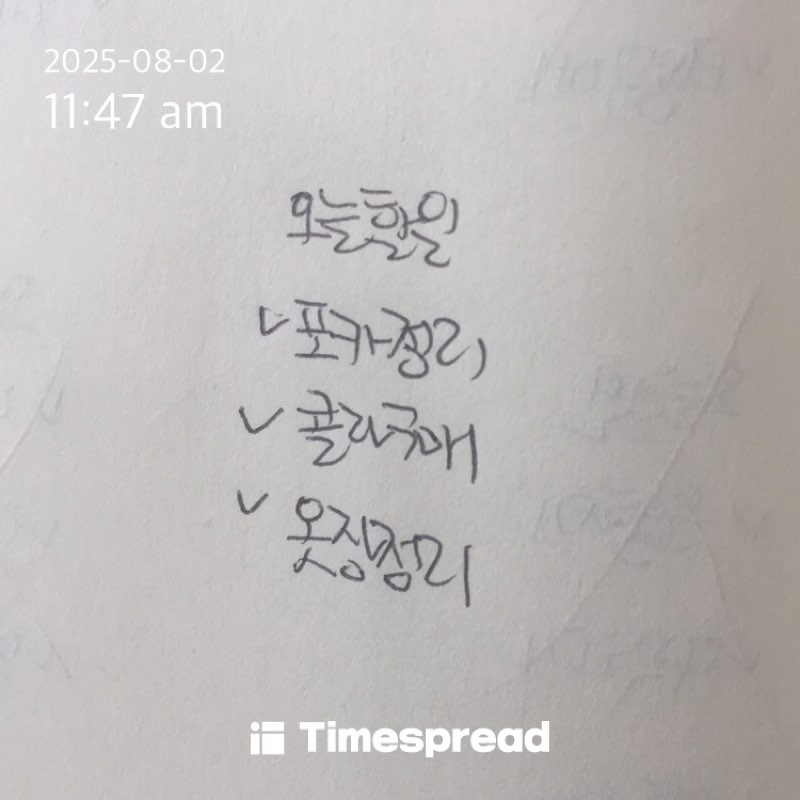 2025-08-02
11:47 am
오늘할일
✓포카정리
✓콜라구매
✓옷장정리
Timespread